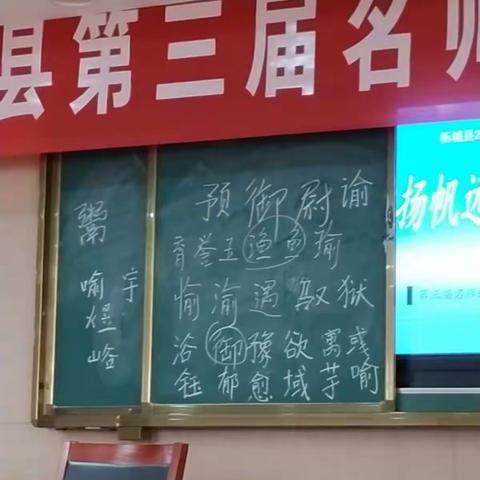 县第三届名师
预御尉谕
育誉玉渔鱼瑜
愉渝遇驭狱
浴御豫欲寓或
钰郁愈域芋喻
鬻
喻宇
煜
峪
柘城县2
扬帆远
第三届名师